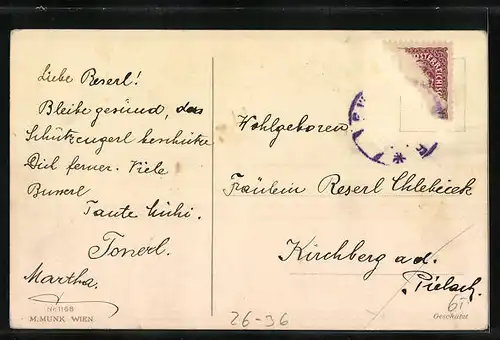 Liebe Reserl!
Bleibe gesund, das
Schützengerl beschütze
Dich ferner. Viele
Busserl
Tante Luhi.
Tonerl.
Martha.
Nr. 1168
M. MUNK, WIEN
Wohlgeboren
Fräulein Reserl Chlebicek
Kirchberg a. d.
Pielach.
61
Geschützt
26-36